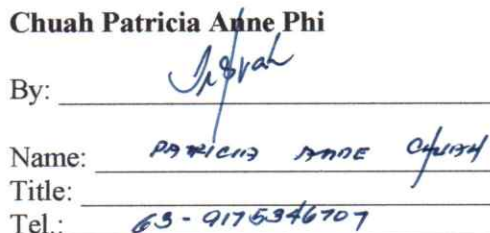 Chuah Patricia Anne Phi
By:
Name: PATRICIA ANNE CHUAH
Title:
Tel.: 63-9175346707